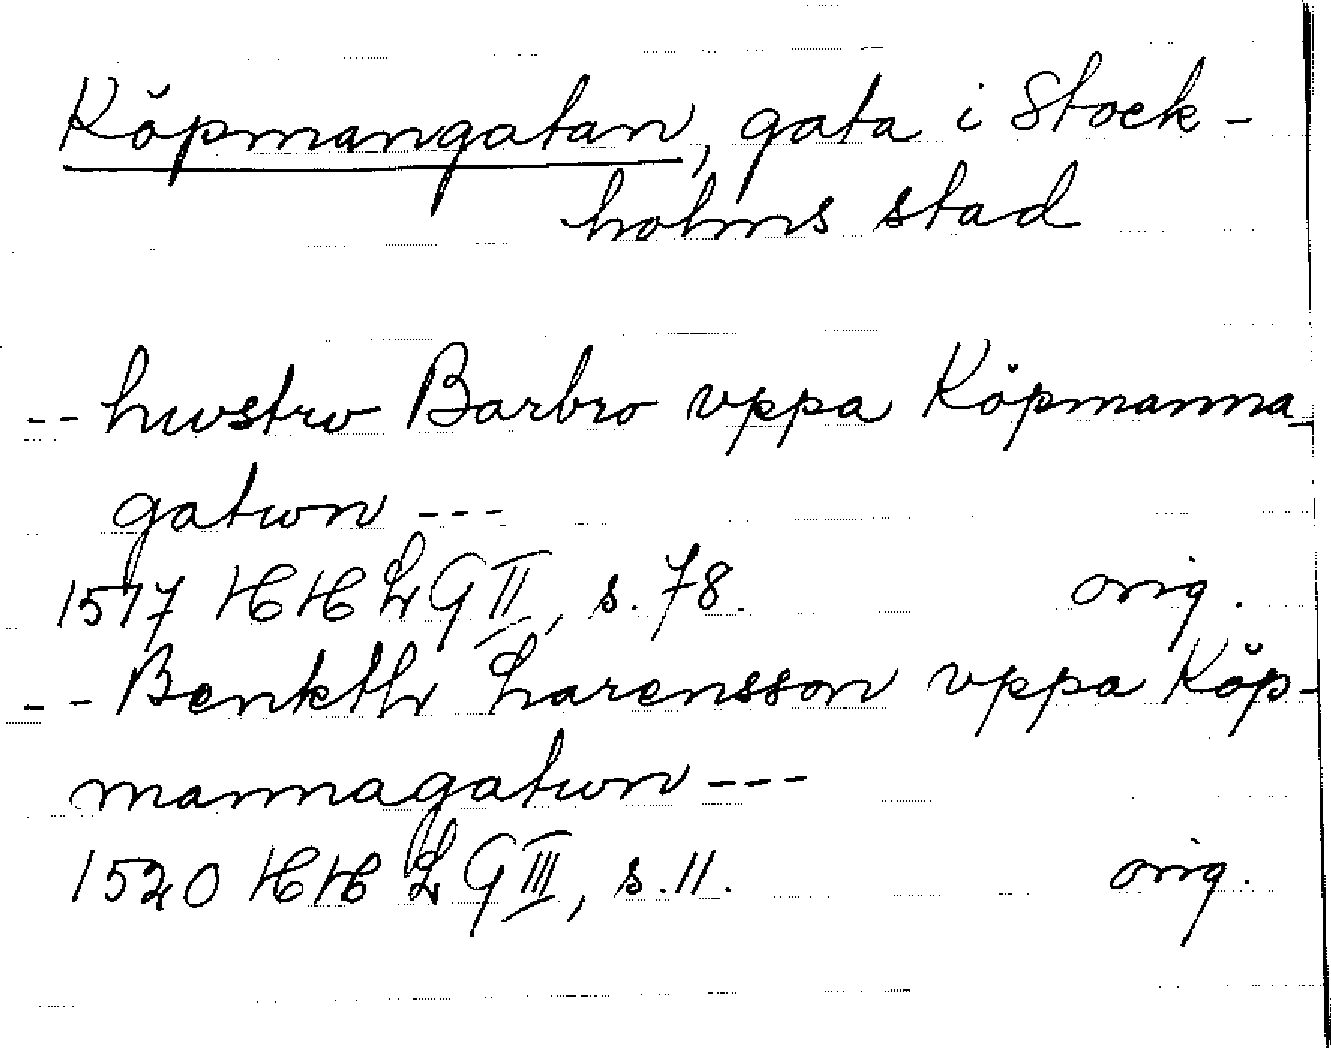 Köpmangatan, gata i Stock-
holms stad
-- hwstrw Barbro vppa Köpmanna-
gatwn ---
1517 HH LG II, s. 78. orig.
-- Benkth Larensson vppa Köp-
mannagatwn ---
1520 HH LG III, s. 11. orig.